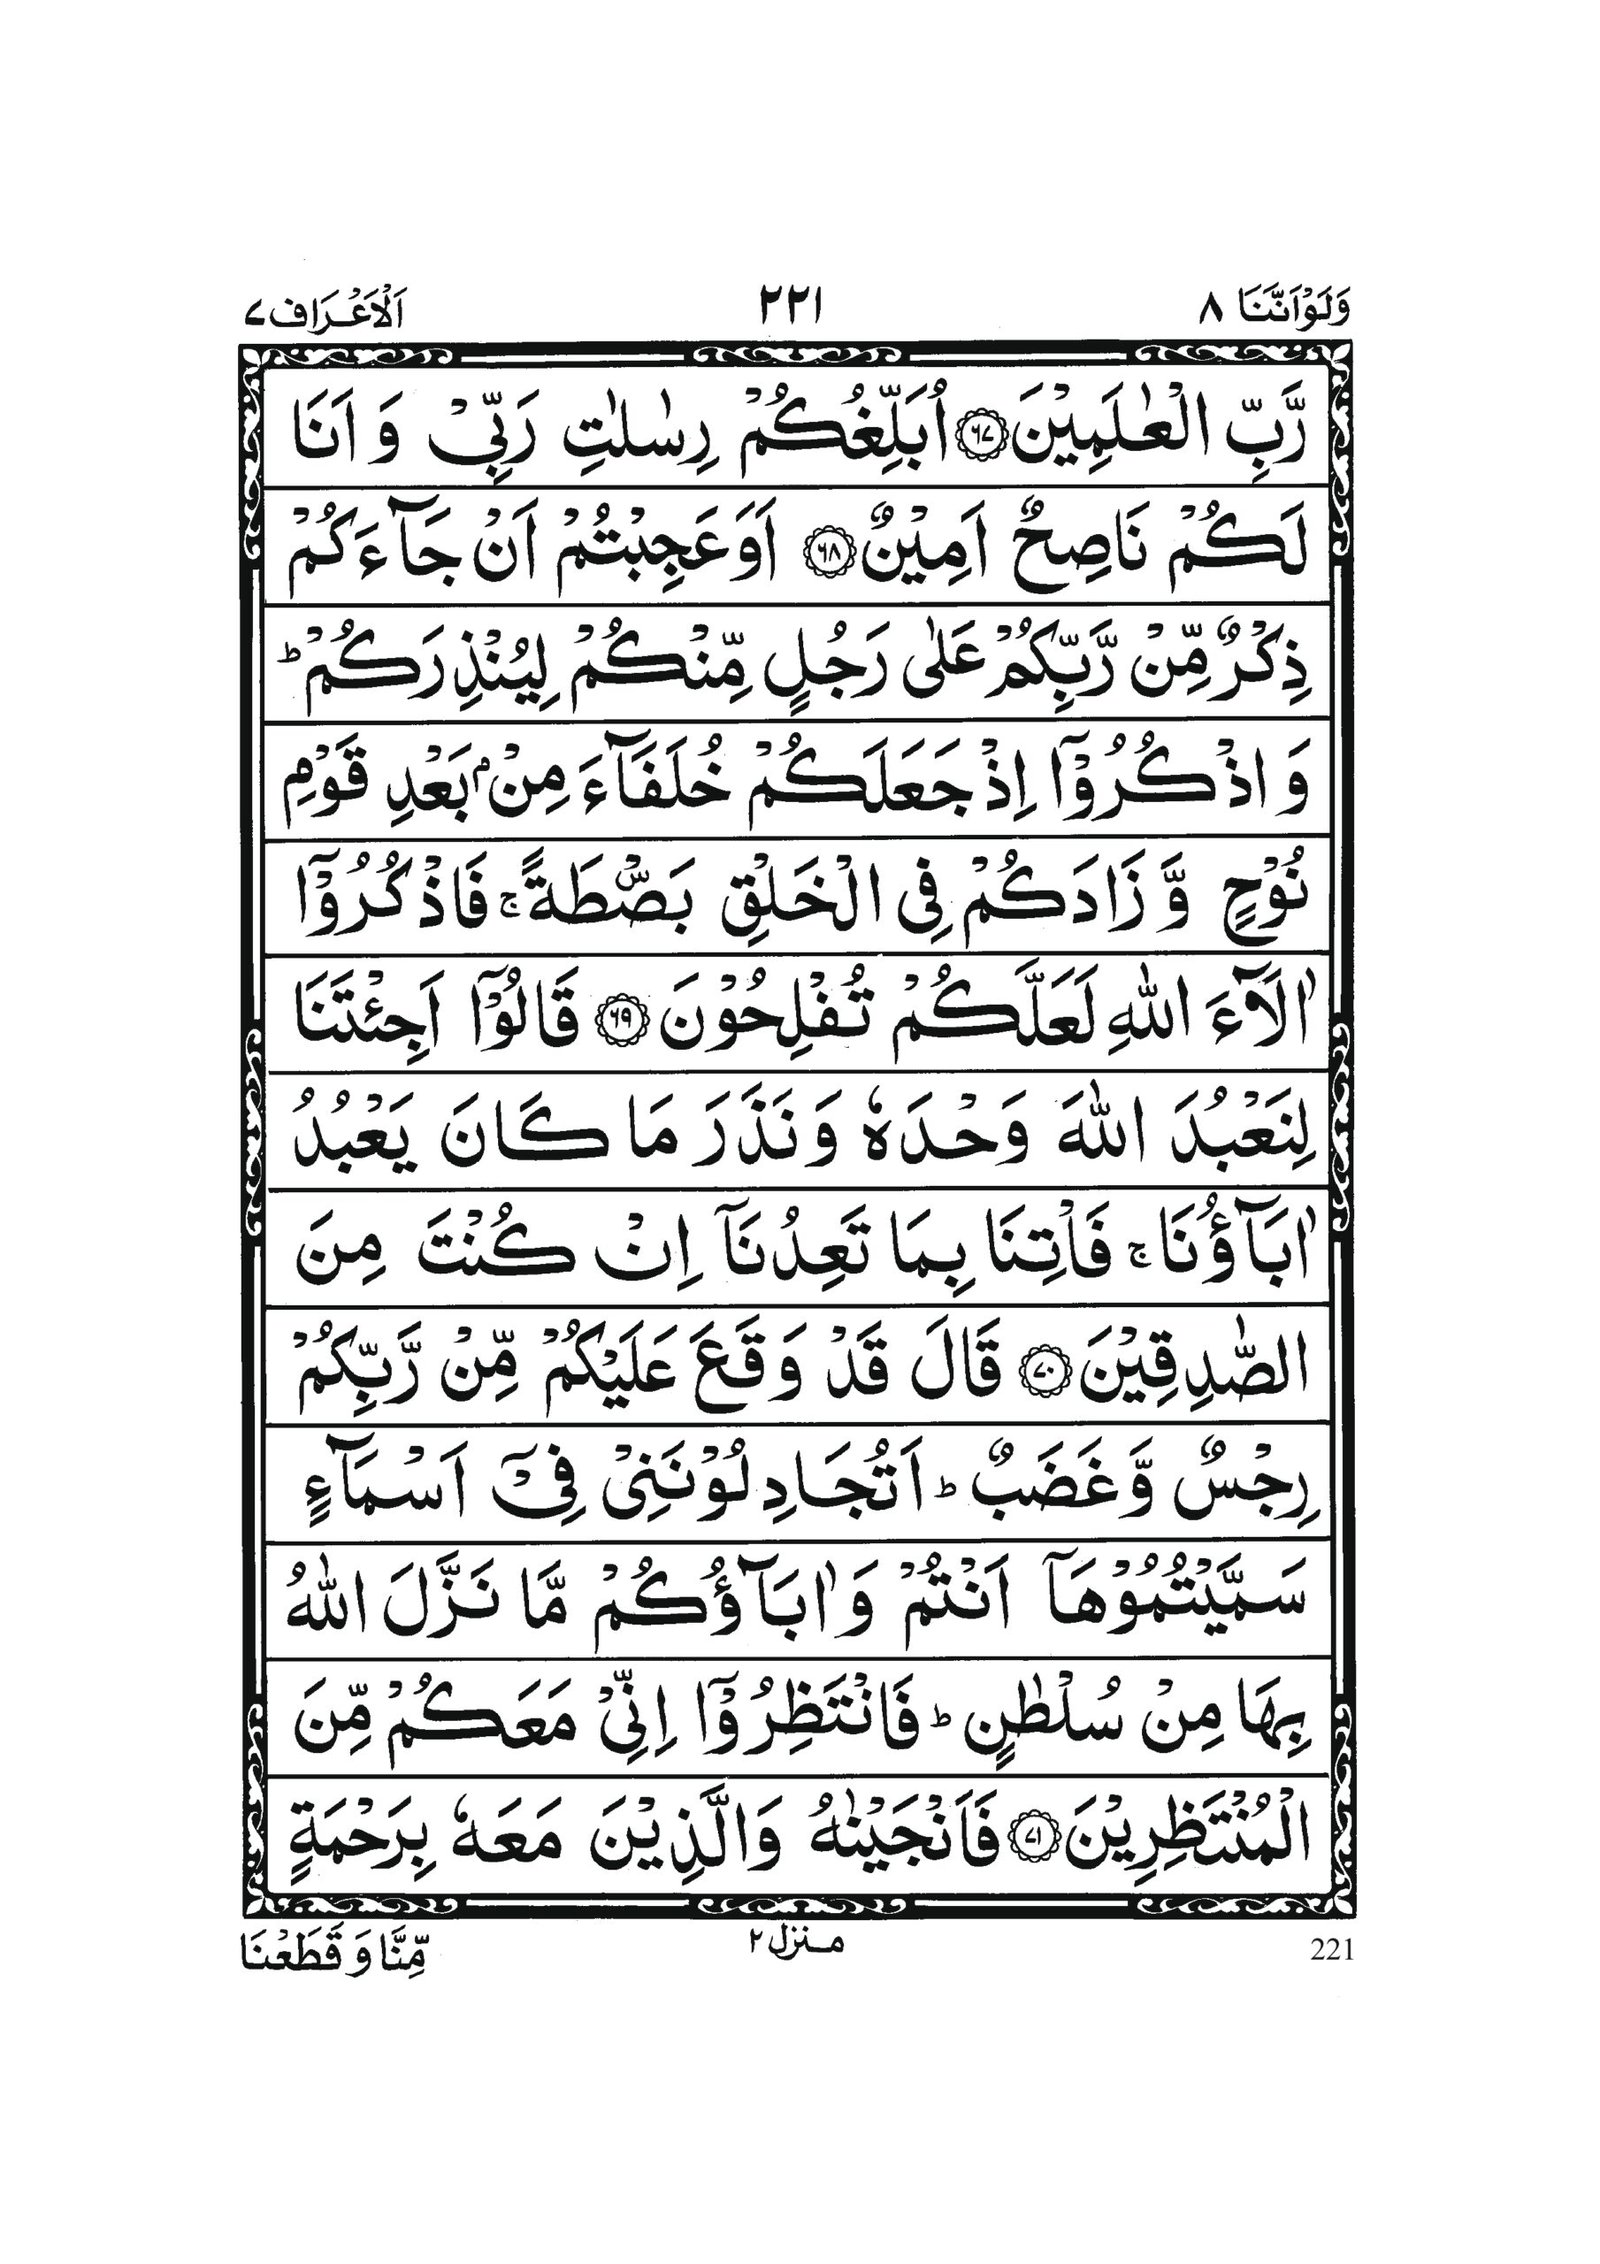 وَلَوْاَنَّنَا ٨
٢٢١
اَلْاَعْرَاف ٧
رَّبِّ الْعٰلَمِيْنَ ﴿٦٧﴾ اُبَلِّغُكُمْ رِسٰلٰتِ رَبِّيْ وَ اَنَا
لَكُمْ نَاصِحٌ اَمِيْنٌ ﴿٦٨﴾ اَوَعَجِبْتُمْ اَنْ جَآءَكُمْ
ذِكْرٌ مِّنْ رَّبِّكُمْ عَلٰى رَجُلٍ مِّنْكُمْ لِيُنْذِرَكُمْ ؕ
وَ اذْكُرُوْۤا اِذْ جَعَلَكُمْ خُلَفَآءَ مِنْۢ بَعْدِ قَوْمِ
نُوْحٍ وَّ زَادَكُمْ فِى الْخَلْقِ بَصْۜطَةً ۚ فَاذْكُرُوْۤا
اٰلَآءَ اللّٰهِ لَعَلَّكُمْ تُفْلِحُوْنَ ﴿٦٩﴾ قَالُوْۤا اَجِئْتَنَا
لِنَعْبُدَ اللّٰهَ وَحْدَهٗ وَ نَذَرَ مَا كَانَ يَعْبُدُ
اٰبَآؤُنَا ۚ فَاْتِنَا بِمَا تَعِدُنَاۤ اِنْ كُنْتَ مِنَ
الصّٰدِقِيْنَ ﴿٧٠﴾ قَالَ قَدْ وَقَعَ عَلَيْكُمْ مِّنْ رَّبِّكُمْ
رِجْسٌ وَّ غَضَبٌ ؕ اَتُجَادِلُوْنَنِيْ فِيْۤ اَسْمَآءٍ
سَمَّيْتُمُوْهَاۤ اَنْتُمْ وَ اٰبَآؤُكُمْ مَّا نَزَّلَ اللّٰهُ
بِهَا مِنْ سُلْطٰنٍ ؕ فَانْتَظِرُوْۤا اِنِّيْ مَعَكُمْ مِّنَ
الْمُنْتَظِرِيْنَ ﴿٧١﴾ فَاَنْجَيْنٰهُ وَالَّذِيْنَ مَعَهٗ بِرَحْمَةٍ
221
مـنزل ٢
مِّنَّا وَ قَطَعْنَا